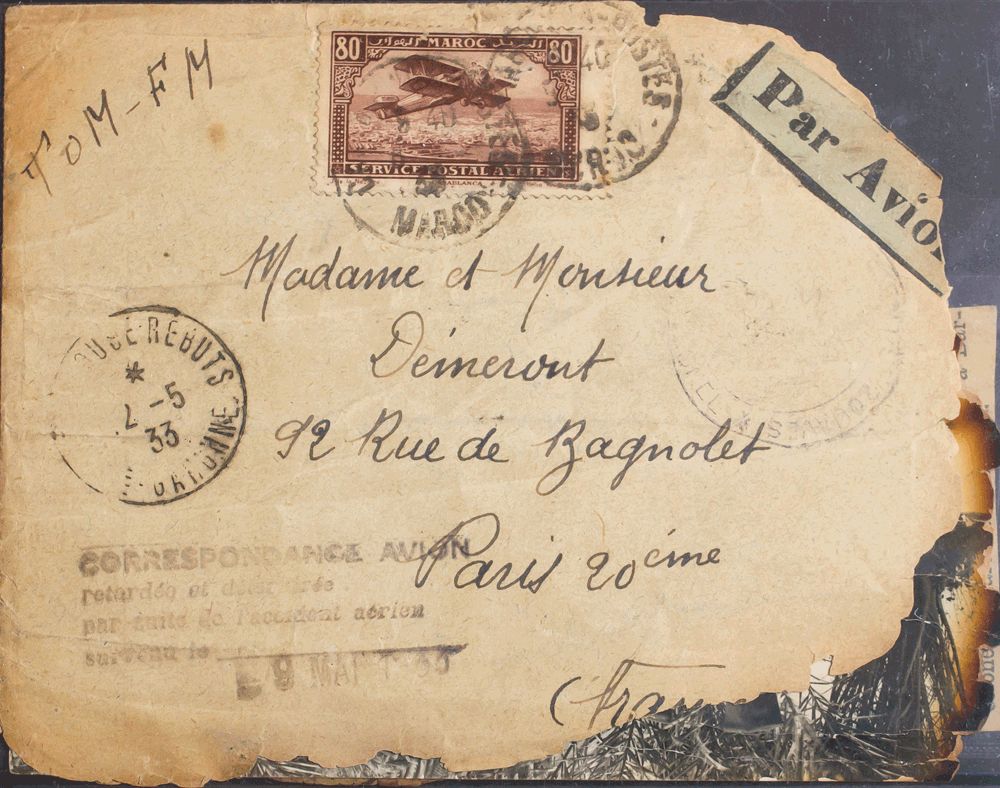 TOM-FM
80 MAROC 80
SERVICE POSTAL AÉRIEN
CASABLANCA
MAROC
Par Avion
Madame et Monsieur
Démeront
92 Rue de Bagnolet
Paris 20ème
(Fran
REBUTS
2 -5
33
CORRESPONDANCE AVION
retardée et
par suite de l'accident aérien
survenu le